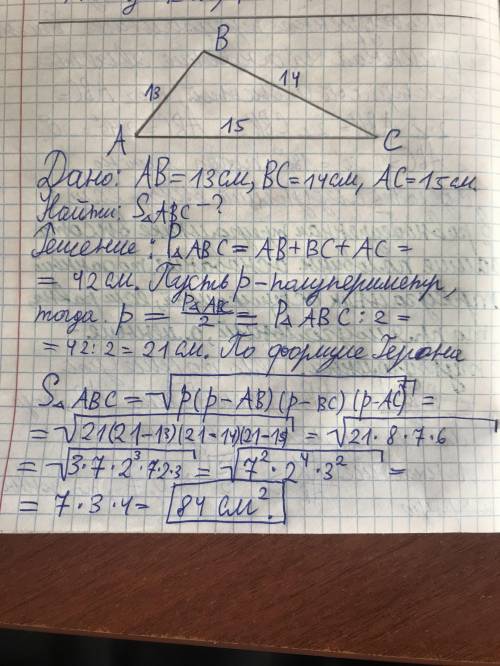 B
13
14
A
15
C
Дано: AB = 13 см, BC = 14 см, AC = 15 см.
Найти: S△ABC - ?
Решение: P△ABC = AB + BC + AC =
= 42 см. Пусть p - полупериметр,
тогда p = P△ABC/2 = P△ABC : 2 =
= 42 : 2 = 21 см. По формуле Герона
S△ABC = √p(p-AB)(p-BC)(p-AC) =
= √21(21-13)(21-14)(21-15) = √21·8·7·6
= √3·7·2³·7·2·3 = √7²·2⁴·3² =
= 7·3·4 = 84 см².